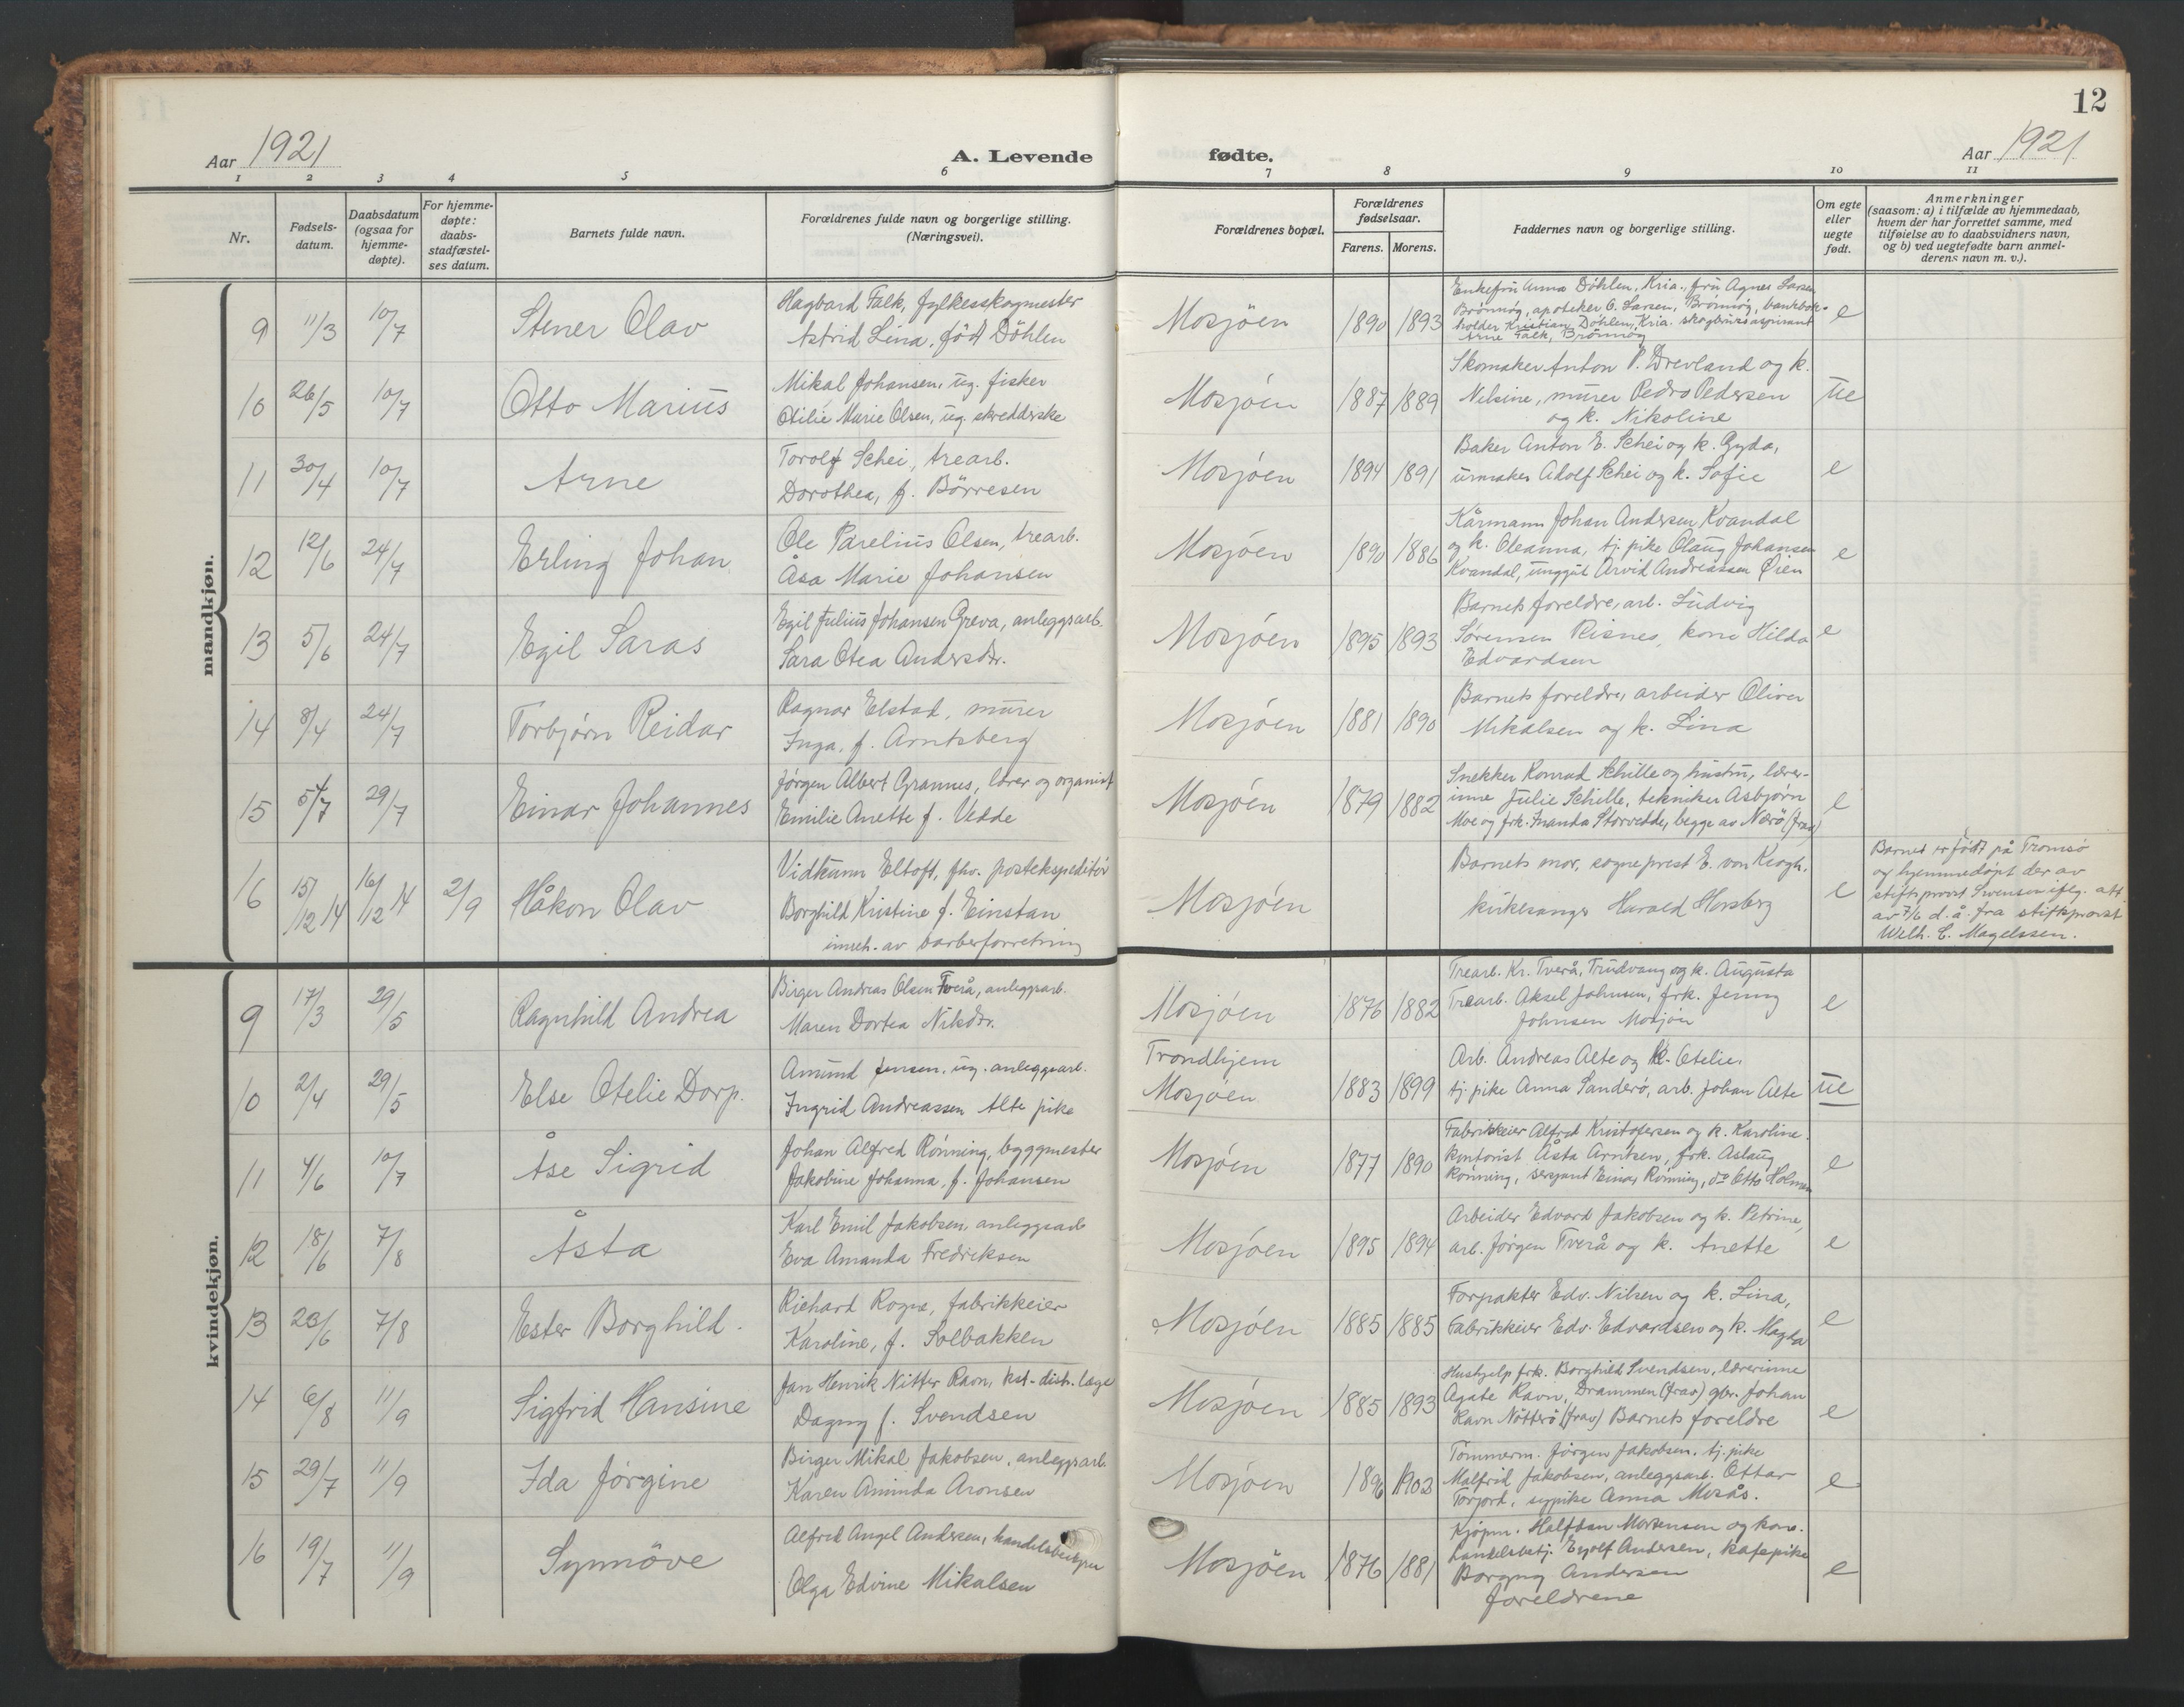 12
Aar 1921
A. Levende fødte.
Aar 1921
1 2 3 4 5 6 7 8 9 10 11
Nr.
Fødsels-
datum.
Daabsdatum
(ogsaa for
hjemme-
døpte).
For hjemme-
døpte:
daabs-
stadfæstel-
ses datum.
Barnets fulde navn.
Forældrenes fulde navn og borgerlige stilling.
(Næringsvei).
Forældrenes bopæl.
Forældrenes
fødselsaar.
Farens. Morens.
Faddernes navn og borgerlige stilling.
Om egte
eller
uegte
født.
Anmerkninger
(saasom: a) i tilfælde av hjemmedaab,
hvem der har forrettet samme, med
tilføielse av to daabsvidners navn,
og b) ved uegtefødte barn anmel-
derens navn m. v.).
mandkjøn.
9 11/3 10/7 Stener Olav
Hagbard Falk, fylkesskogmester
Astrid Lina, født Döhlen
Mosjöen 1890 1893
Enkefru Anna Döhlen, Kria., fru Agnes Larsen
Brönnög, apoteker O. Larsen, Brönnög, bankbok-
holder Kristian Döhlen, Kria. skogbruksaspirant
Arne Falk, Brönnög
e
10 26/5 10/7 Otto Marius
Mikal Johansen, ug. fisker
Otilie Marie Olsen, ug. skredderske
Mosjöen 1887 1889
Skomaker Anton P. Drevland og k.
Nilsine, murer Pedro Pedersen
og k. Nikoline
ue
11 30/4 10/7 Arne
Torolf Schei, trearb.
Dorothea, f. Börresen
Mosjöen 1894 1891
Baker Anton E. Schei og k. Gyda,
urmaker Adolf Schei og k. Sofie
e
12 12/6 24/7 Erling Johan
Ole Parelius Olsen, trearb.
Åsa Marie Johansen
Mosjöen 1890 1886
Kårmann Johan Andersen Kvandal
og k. Oleanna, tj. pike Olaug Johansen
Kvandal, unggut Arvid Andreassen Øien
e
13 5/6 24/7 Egil Saras
Egil Julius Johansen Greva, anleggsarb.
Sara Otea Andersdr.
Mosjöen 1895 1893
Barnets foreldre, arb. Ludvig
Sørensen Risnes, kone Hilda
Edvardsen
e
14 8/4 24/7 Torbjørn Reidar
Ragnar Elstad, murer
Inga, f. Arntsberg
Mosjöen 1881 1890
Barnets foreldre, arbeider Oliver
Mikalsen og k. Lina
15 5/7 29/7 Einar Johannes
Jörgen Albert Grannes, lærer og organist
Emilie Anette f. Vedde
Mosjöen 1879 1882
Snekker Konrad Schille og hustru, lærer-
inne Julie Schille, tekniker Asbjørn
Moe og frk. Inanda Storvedde, begge av Nærö (frav)
e
16 15/12 14 16/12 14 2/9 Håkon Olav
Vidkunn Eltoft, fhv. postekspeditör
Borghild Kristine f. Einstan
inneh. av barberforretning
Mosjöen
Barnets mor, sogneprest E. von Krogh,
kirkesanger Harald Horsberg
e
Barnet er født på Tromsö
og hjemmedöpt der av
stiftsprovst Svensen iflg. att.
av 7/6 d.å. fra stiftsprovst
Wilh. C. Magelssen.
kvindekjøn.
9 17/3 29/5 Ragnhild Andrea
Birger Andreas Olsen Tverå, anleggsarb.
Maren Dortea Nilsdr.
Mosjöen 1876 1882
Trearb. Kr. Tverå, Trudvang og k. Augusta
Trearb. Aksel Johnsen, frk. Jenny
Johnsen Mosjöen
e
10 2/4 29/5 Else Otelie Dorp.
Amund Jensen, ug. anleggsarb.
Ingrid Andreassen Alte pike
Trondhjem
Mosjöen 1883 1899
Arb. Andreas Alte og k. Otelie,
tj. pike Anna Sanderö, arb. Johan Alte
ue
11 4/6 10/7 Åse Sigrid
Johan Alfred Rönning, byggmester
Jakobine Johanna, f. Johansen
Mosjöen 1877 1890
Fabrikkeier Alfred Kristofersen og k. Karoline.
kontorist Åsta Arntsen, frk. Aslaug
Rönning, sersjant Einar Rönning, do Otto Holmen
e
12 18/6 7/8 Åsta
Karl Emil Jakobsen, anleggsarb
Eva Amanda Fredriksen
Mosjöen 1895 1894
Arbeider Edvard Jakobsen og k. Petrine,
arb. Jörgen Tverå og k. Anette
e
13 20/6 7/8 Ester Borghild.
Richard Rogne, fabrikkeier
Karoline, f. Solbakken
Mosjöen 1885 1885
Forpakter Edv. Nilsen og k. Lina,
Fabrikkeier Edv. Edvardsen og k. Magda
e
14 6/8 11/9 Sigfrid Hansine
Jan Henrik Nitter Ravn, kst. distr. læge
Dagny f. Svendsen
Mosjöen 1885 1893
Hushjelp frk. Borghild Svendsen, lærerinne
Agate Ravn, Drammen (frav) gbr. Johan
Ravn Nötterö (frav) Barnets foreldre
e
15 29/7 11/9 Ida Jörgine
Birger Mikal Jakobsen, anleggsarb.
Karen Aminda Aronsen
Mosjöen 1896 1902
Tömmerm. Jörgen Jakobsen, tj. pike
Malfrid Jakobsen, anleggsarb. Ottar
Torjord, sypike Anna Mosås.
e
16 19/7 11/9 Synnöve
Alfred Angel Andersen, handelsbestyrer
Olga Edvine Mikalsen
Mosjöen 1876 1881
Kjöpm. Halfdan Mortensen og kone.
handelsbetj. Eyolf Andersen, kafepike
Borgny Andersen
foreldrene
e